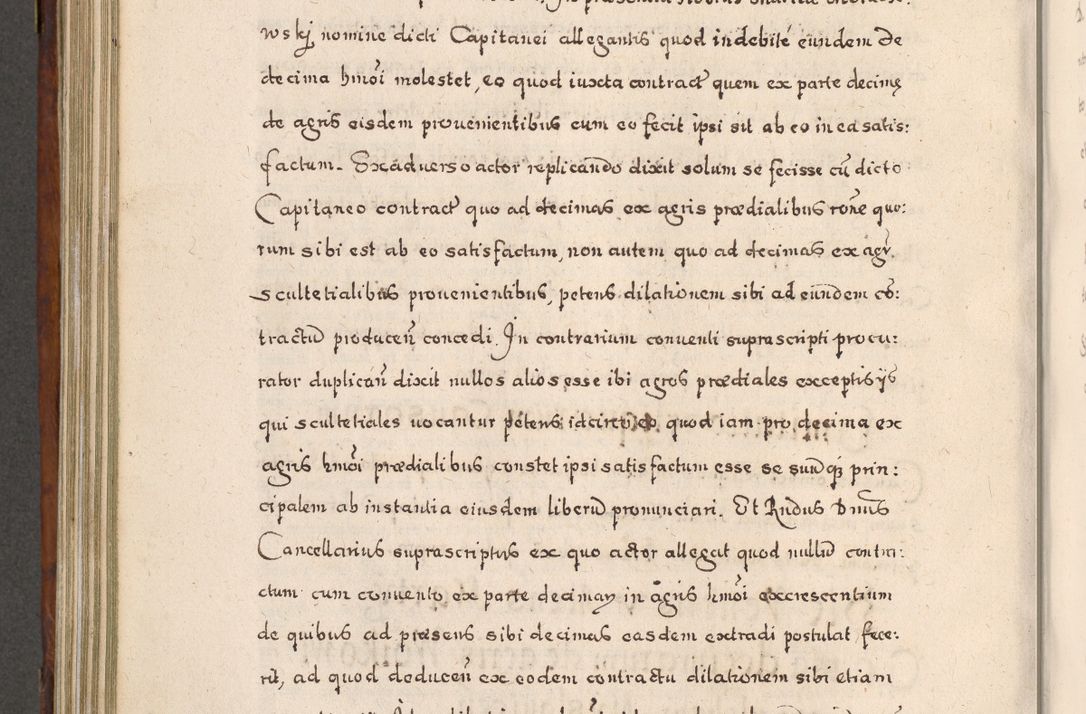 wskj nomine dicti Capitanei allegantis quod indebite eundem de
decima hmoi molestet, eo quod iuxta contract quem ex parte decimę
de agris eisdem prouenientibus cum eo fecit ipsi sit ab eo in ea satis:
factum. Ex aduerso actor replicando dixit solum se fecisse cū dicto
Capitaneo contract quo ad decimas ex agris prædialibus rone quo:
rum sibi est ab eo satisfactum, non autem quo ad decimas ex agr.
scultetialibus prouenientibus, petens dilationem sibi ad eundem cō:
tractū producen concedi. In contrarium conuenti suprascripti procu:
rator duplican dixit nullos alios esse ibi agros prædiales exceptis ijs
qui scultetiales uocantur petens idcirco eo quod iam pro decima ex
agris hmoi prædialibus constet ipsi satisfactum esse se suūq prin:
cipalem ab instantia eiusdem liberū pronunciari. Et Rndus Dnus
Cancellarius suprascriptus ex quo actor allegat quod nullū contra:
ctum cum conuento ex parte decimaȝ in agris hmoi excrescentium
de quibus ad præsens sibi decimas easdem extradi postulat fece:
rit, ad quod deducen ex eodem contractu dilationem sibi etiam